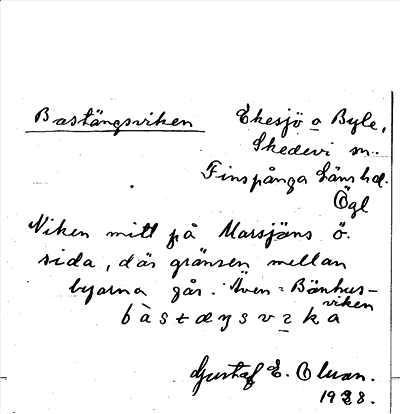 Bastängsviken
Ekesjö o Byle,
Skedevi sn.
Finspånga läns hd.
Ögl
Viken mitt på Marsjöns ö.
sida, där gränsen mellan
byarna går. Även = Bönhus-
viken
bàstæŋsvɩka
Gustaf E. Olsson.
1928.